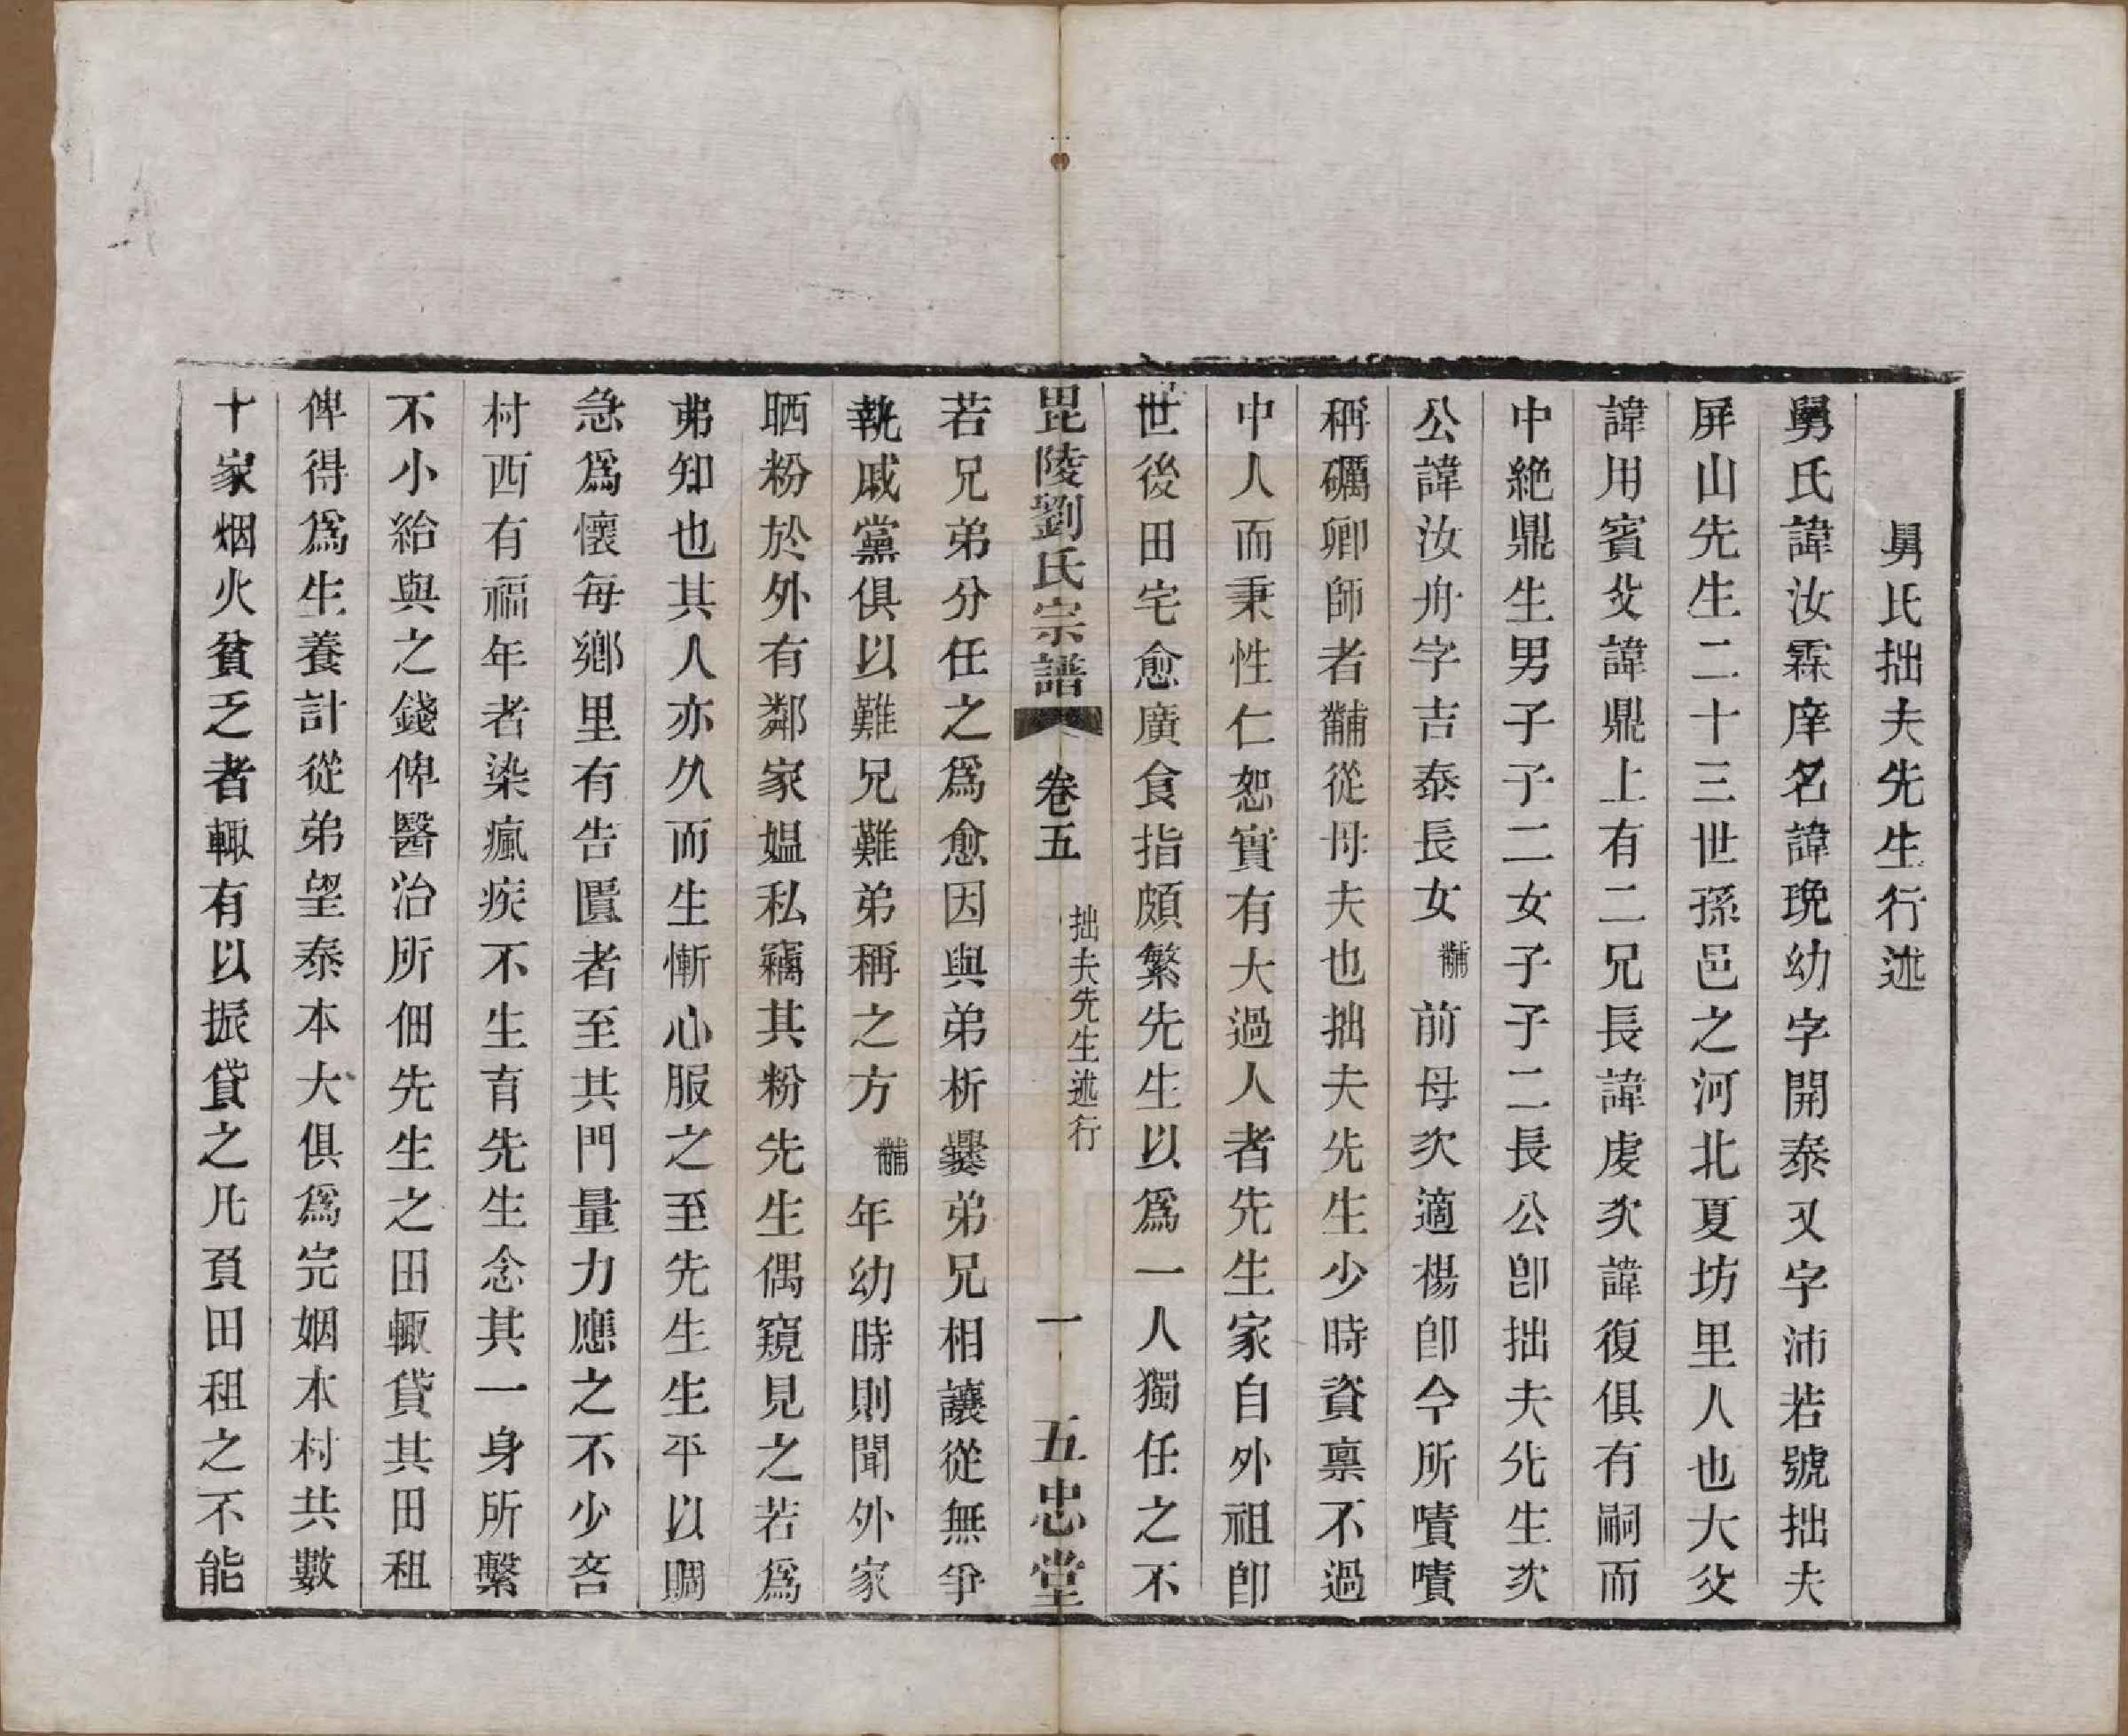 舅氏拙夫先生行述
舅氏諱汝霖庠名諱琬幼字開泰又字沛若號拙夫
屏山先生二十三世孫邑之河北夏坊里人也大父
諱用賓父諱鼎上有二兄長諱虔次諱復俱有嗣而
中絶鼎生男子子二女子子二長公卽拙夫先生次
公諱汝舟字吉泰長女黼前母次適楊卽今所嘖嘖
稱礪卿師者黼從母夫也拙夫先生少時資禀不過
中人而秉性仁恕實有大過人者先生家自外祖卽
世後田宅愈廣食指頗繁先生以爲一人獨任之不
毘陵劉氏宗譜 卷五 拙夫先生述行 一 五忠堂
若兄弟分任之爲愈因與弟析爨弟兄相讓從無爭
執戚黨俱以難兄難弟稱之方黼年幼時則聞外家
晒粉於外有鄰家媪私竊其粉先生偶窺見之若爲
弗知也其人亦久而生慚心服之至先生生平以賙
急爲懷每鄉里有告匱者至其門量力應之不少吝
村西有福年者染瘋疾不生育先生念其一身所繫
不小紿與之錢俾醫治所佃先生之田輙貸其田租
俾得爲生養計從弟望泰本大俱爲完姻本村共數
十家烟火貧乏者輙有以振貸之凡負田租之不能